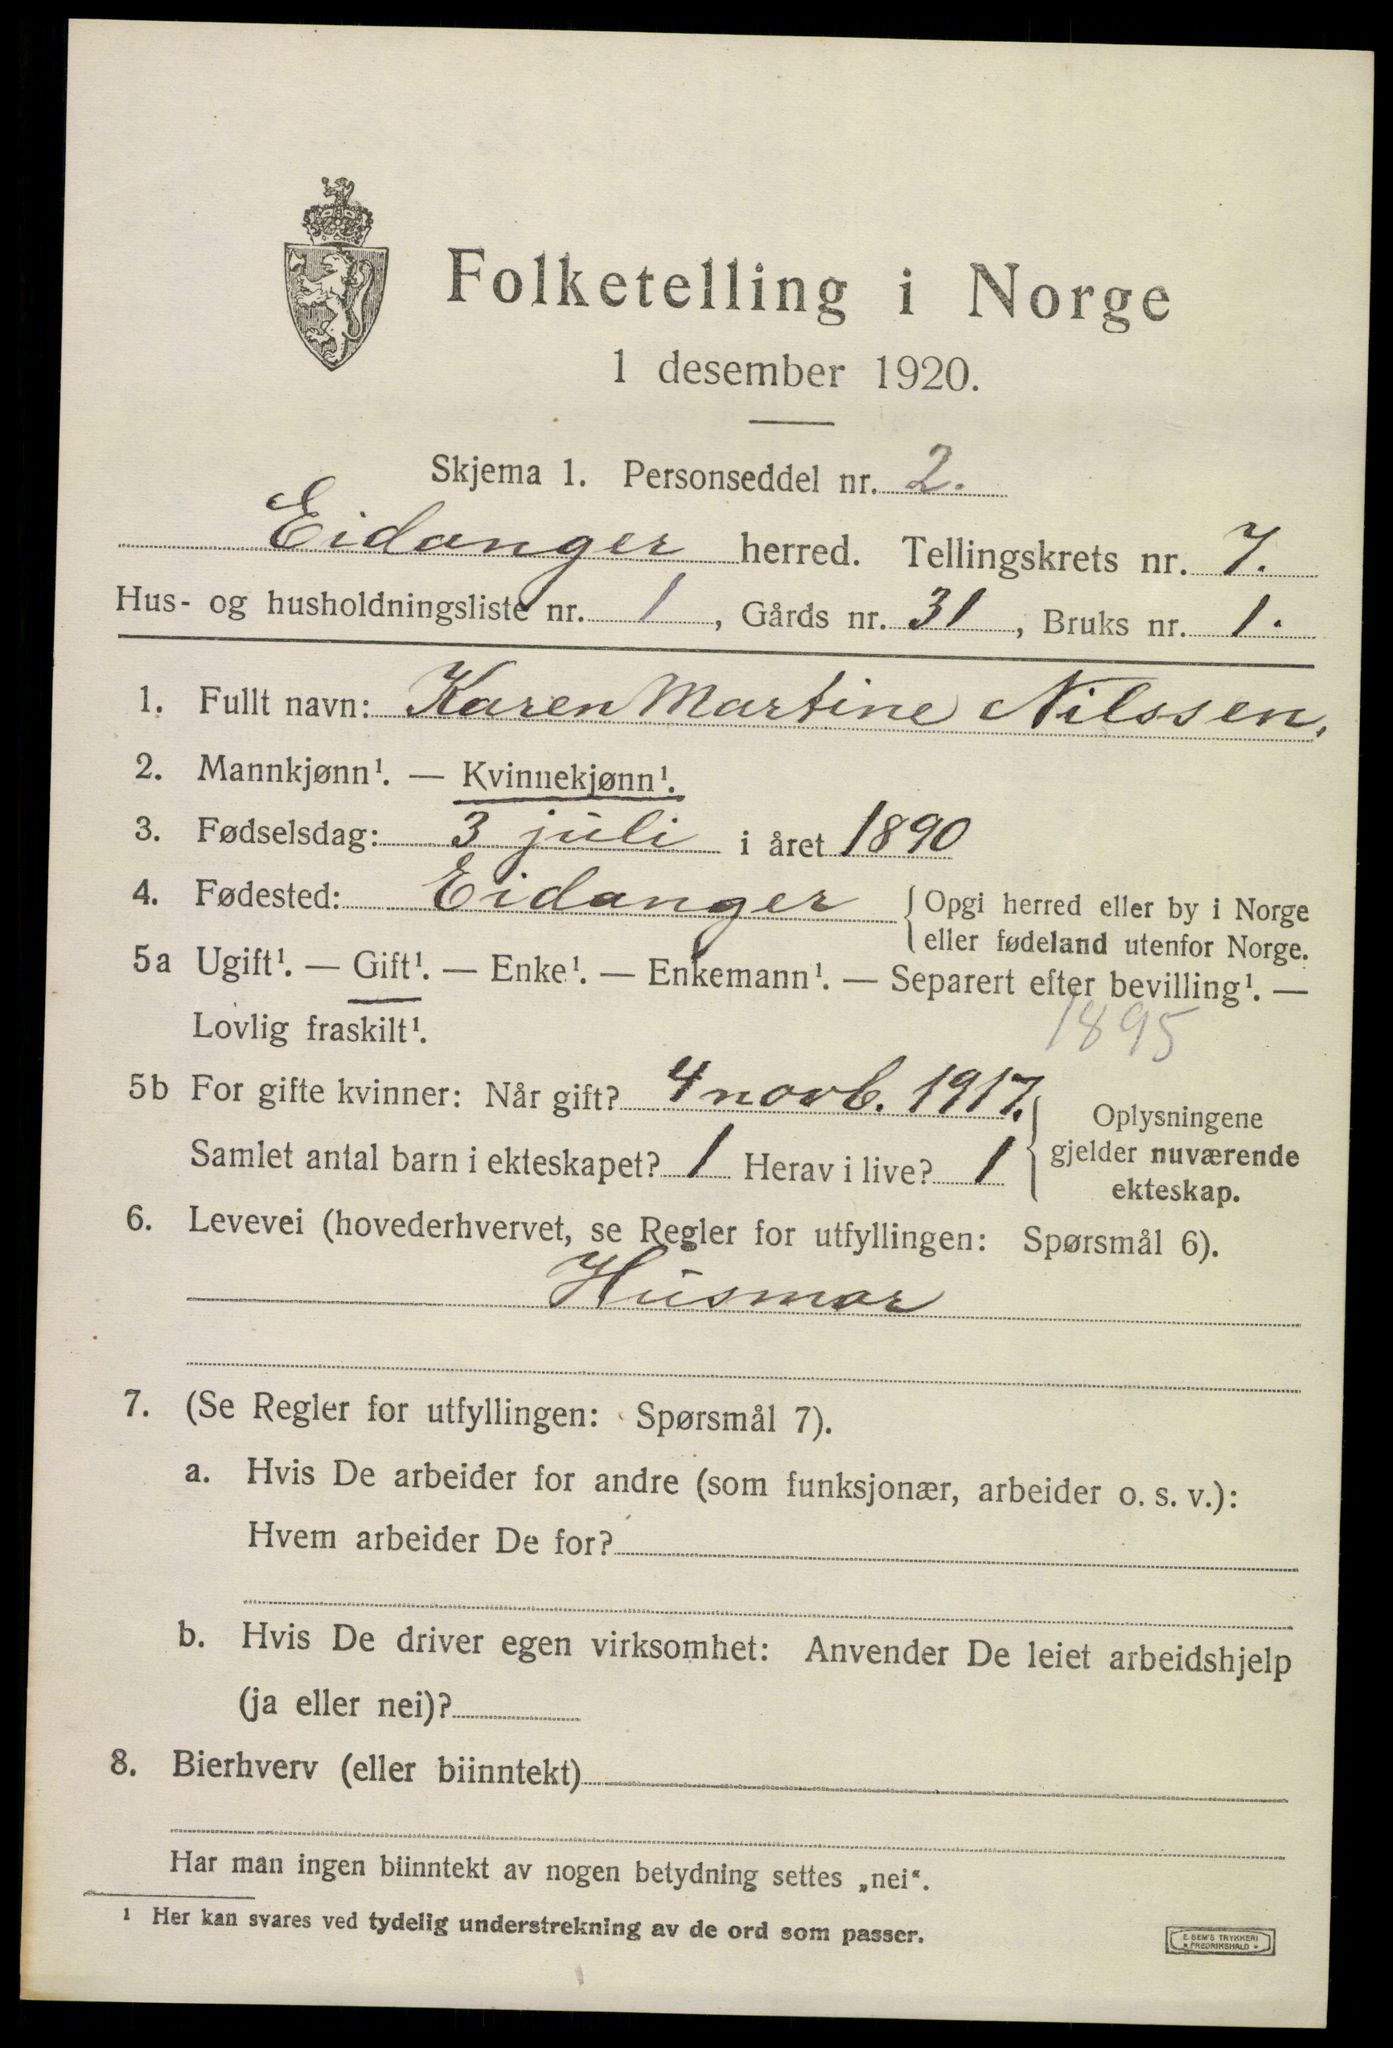 Folketelling i Norge
1 desember 1920.
Skjema 1. Personseddel nr. 2.
Eidanger herred. Tellingskrets nr. 7.
Hus- og husholdningsliste nr. 1, Gårds nr. 31, Bruks nr. 1.
1. Fullt navn: Karen Martine Nilssen.
2. Mannkjønn¹. — Kvinnekjønn¹.
3. Fødselsdag: 3 juli i året 1890
4. Fødested: Eidanger { Opgi herred eller by i Norge
eller fødeland utenfor Norge.
5a Ugift¹. — Gift¹. — Enke¹. — Enkemann¹. — Separert efter bevilling¹. —
Lovlig fraskilt¹. 1895
5b For gifte kvinner: Når gift? 4 novb. 1917. { Oplysningene
Samlet antal barn i ekteskapet? 1 Herav i live? 1 gjelder nuværende
ekteskap.
6. Levevei (hovederhvervet, se Regler for utfyllingen: Spørsmål 6).
Husmor
7. (Se Regler for utfyllingen: Spørsmål 7).
a. Hvis De arbeider for andre (som funksjonær, arbeider o. s. v.):
Hvem arbeider De for?
b. Hvis De driver egen virksomhet: Anvender De leiet arbeidshjelp
(ja eller nei)?
8. Bierhverv (eller biinntekt)
Har man ingen biinntekt av nogen betydning settes „nei“.
¹ Her kan svares ved tydelig understrekning av de ord som passer.
E. SEM'S TRYKKERI
FREDRIKSHALD